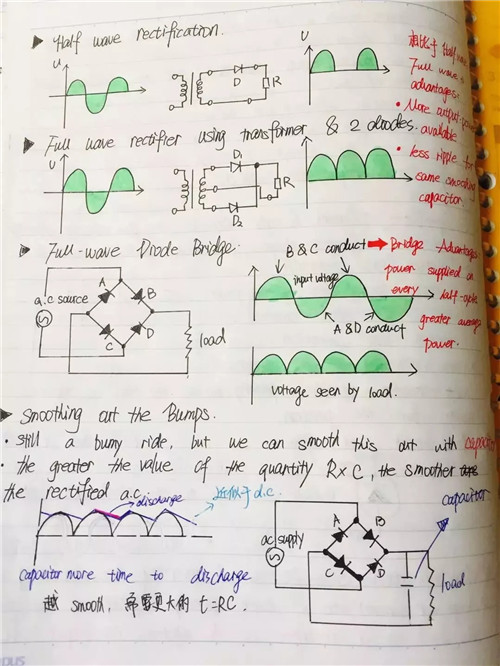 Half wave rectification.
U
D
R
U
相比于 Half wave
Full wave's
advantages.
• More output power
available
• less ripple for
same smoothing
capacitor.
Full wave rectifier using transformer & 2 diodes.
U
D1
D2
R
Full-wave Diode Bridge.
B & C conduct ➡ Bridge - Advantage
power supplied on
every half-cycle
greater average
power.
input voltage
A & D conduct
a.c source
S
A
B
C
D
load
voltage seen by load.
Smoothing out the Bumps.
• still a bumy ride, but we can smooth this out with capacitor
• the greater the value of the quantity R×C, the smoother
the rectified a.c.
discharge
近似于 d.c.
capacitor
ac supply
S
A
B
C
D
load
capacitor more time to discharge
越 smooth, 需要更大的 t=RC.